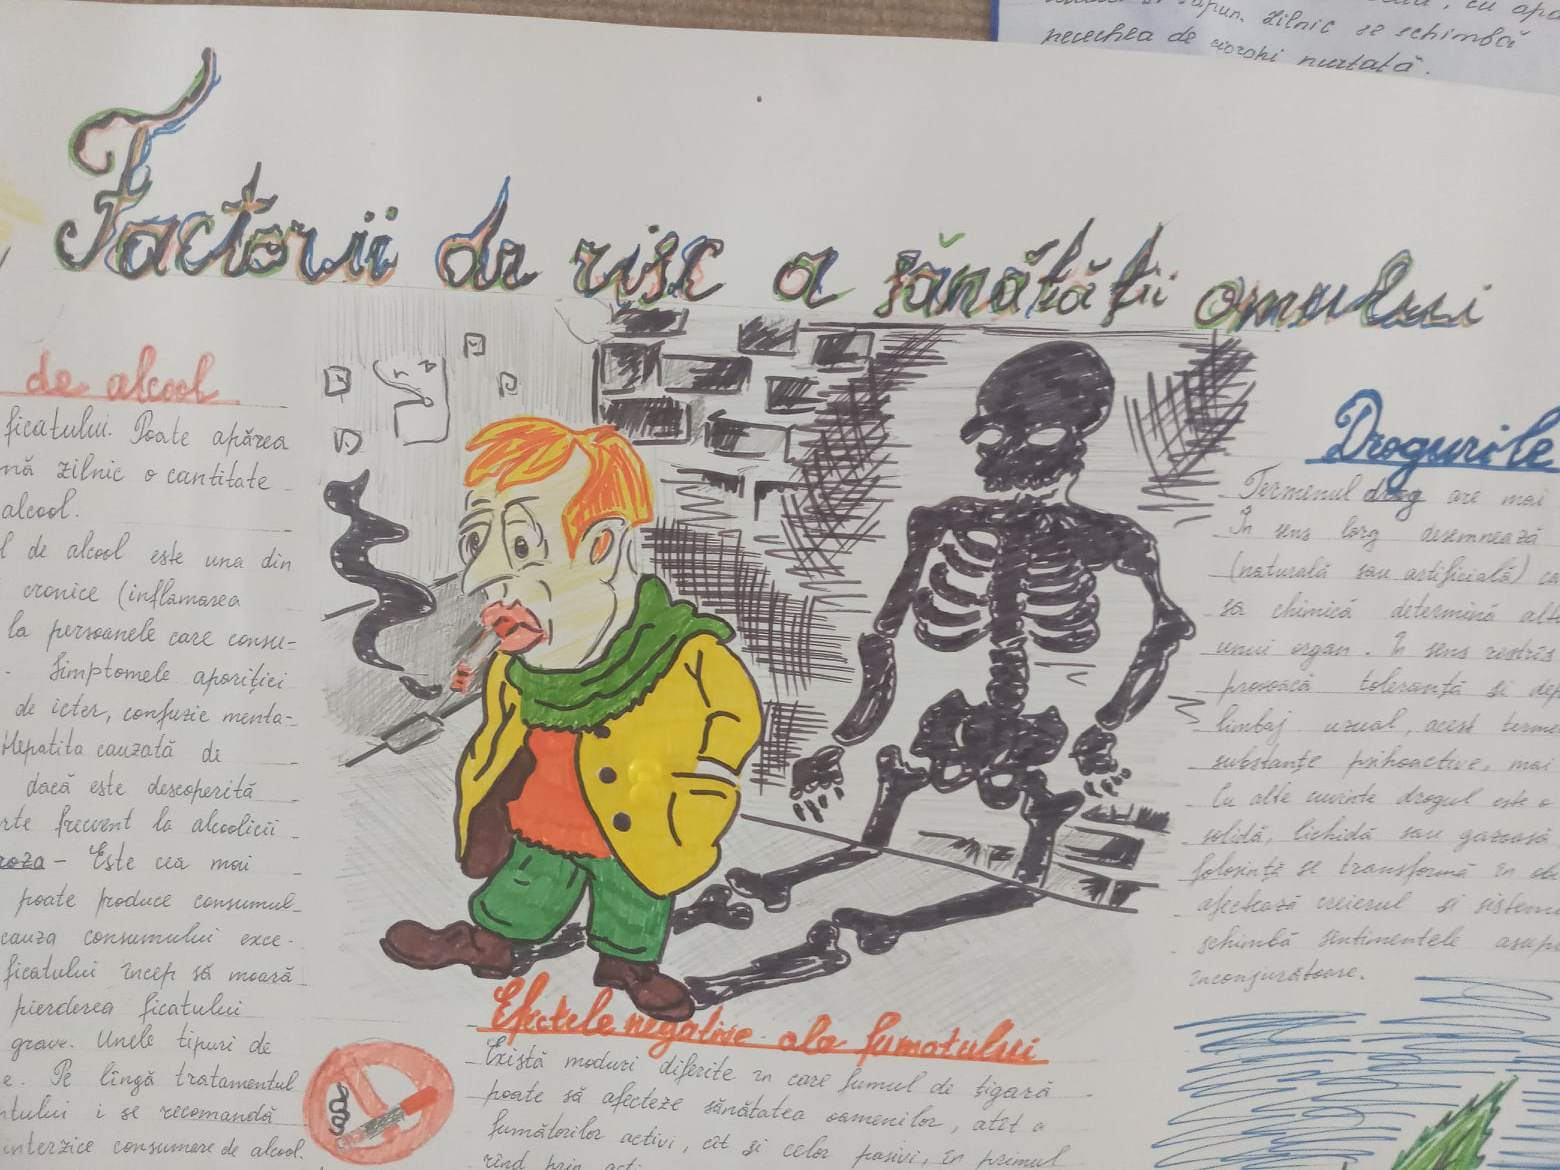 , cu apă
săpun. Zilnic se schimbă
perechea de ciorapi purtată.
Factorii de risc a sănătății omului
de alcool
ficatului. Poate apărea
nă zilnic o cantitate
alcool.
l de alcool este una din
cronice (inflamarea
la persoanele care consu-
. Simptomele apariției
de icter, confuzie menta-
Hepatita cauzată de
dacă este descoperită
rte frecvent la alcoolicii
roza - Este cea mai
poate produce consumul
cauza consumului exce-
ficatului încep să moară
pierderea ficatului
grave. Unele tipuri de
e. Pe lîngă tratamentul
ntului i se recomandă
interzice consumare de alcool.
Efectele negative ale fumatului
Există moduri diferite în care fumul de țigară
poate să afecteze sănătatea oamenilor, atît a
fumătorilor activi, cît și celor pasivi, în primul
rînd prin acti
Drogurile
Termenul drog are mai
În sens larg desemnează
(naturală sau artificială) ca
sa chimică determină alte
unui organ. În sens restrîs
provoacă toleranță și dep
limbaj uzual, acest terme
substanțe psihoactive, mai
Cu alte cuvinte drogul este o
solidă, lichidă sau gazoasă
folosință se transformă în obi
afectează creierul și sistemu
schimbă sentimentele asup
înconjurătoare.